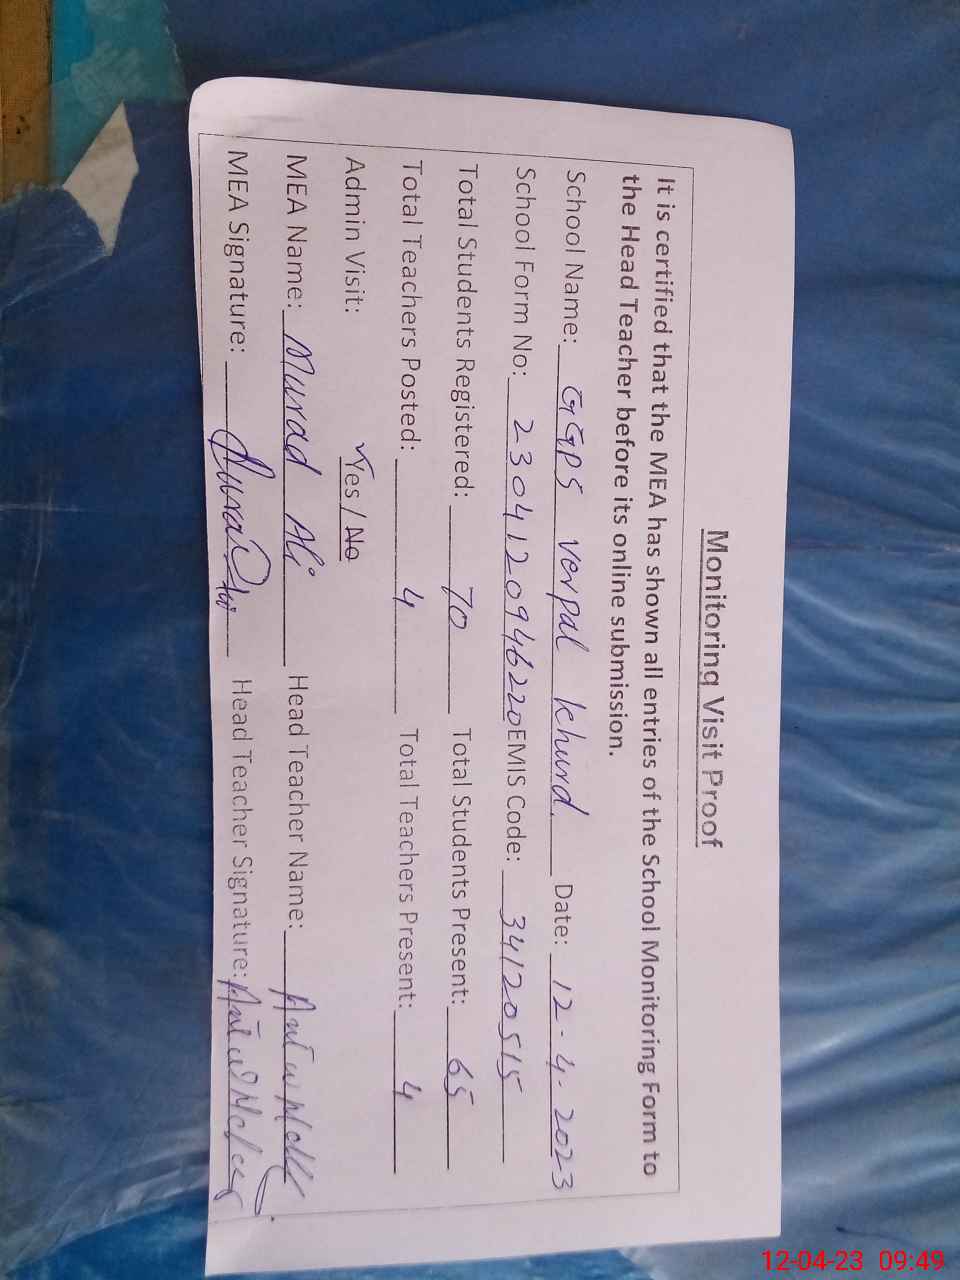 Monitoring Visit Proof
It is certified that the MEA has shown all entries of the School Monitoring Form to
the Head Teacher before its online submission.
School Name: GGPS verpal khurd. Date: 12-4-2023
School Form No: 2304120946220 EMIS Code: 34120515
Total Students Registered: 70 Total Students Present: 65
Total Teachers Posted: 4 Total Teachers Present: 4
Admin Visit: Yes / No
MEA Name: Murad Ali Head Teacher Name:
MEA Signature: Head Teacher Signature:
12-04-23 09:49